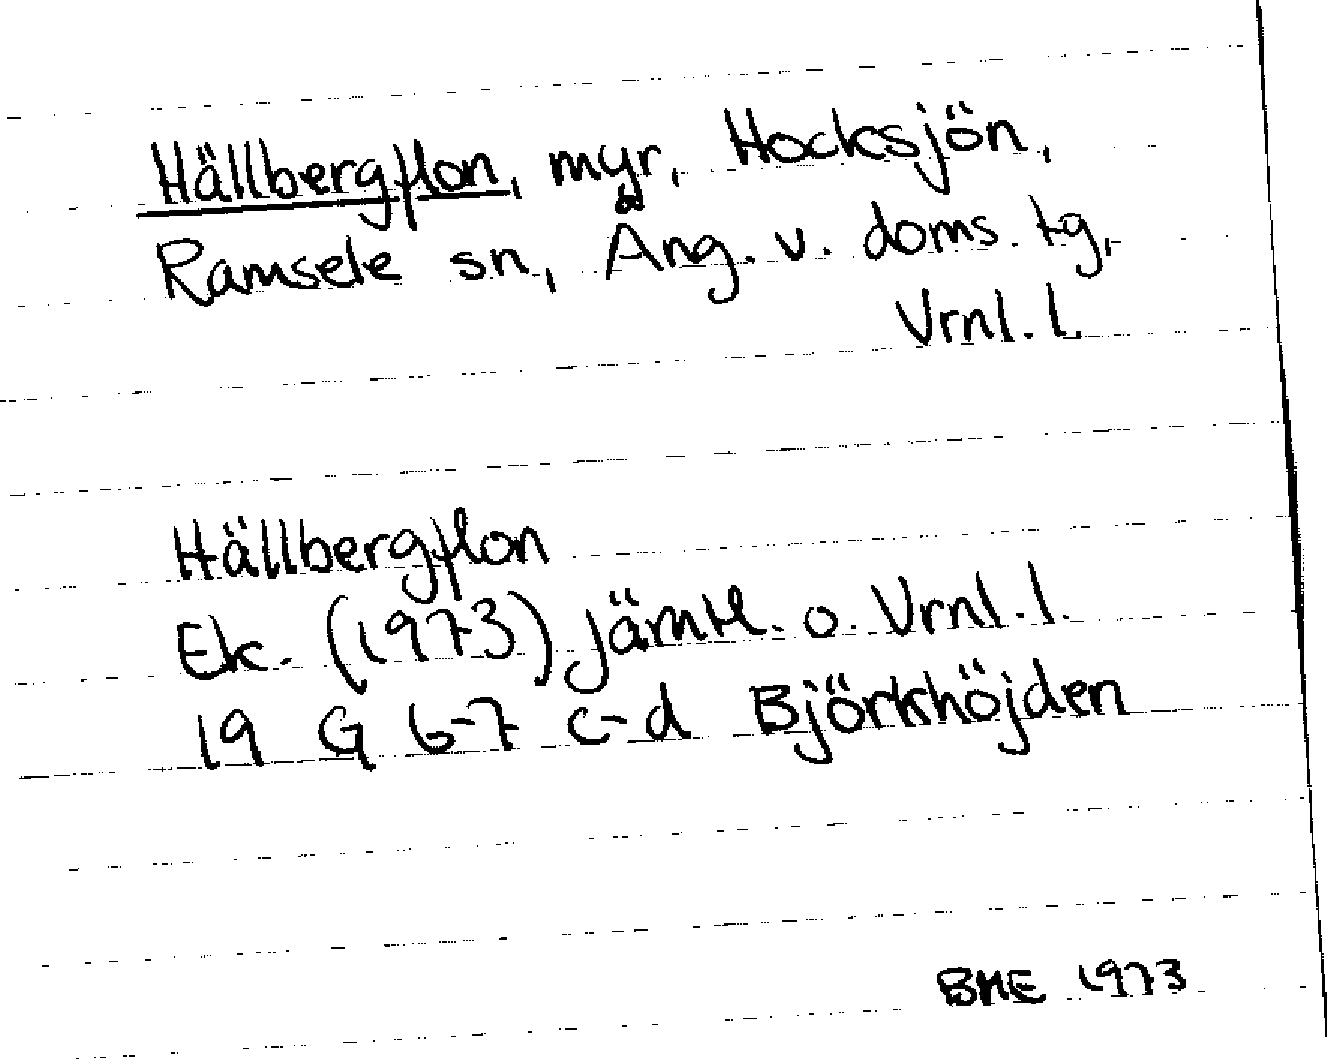 Hällbergflon, myr, Hocksjön,
Ramsele sn, Ång. v. doms. tg,
Vrnl. l.
Hällbergflon
Ek. (1973) Jämtl. o. Vrnl. l.
19 G 6-7 c-d Björkhöjden
BME 1973